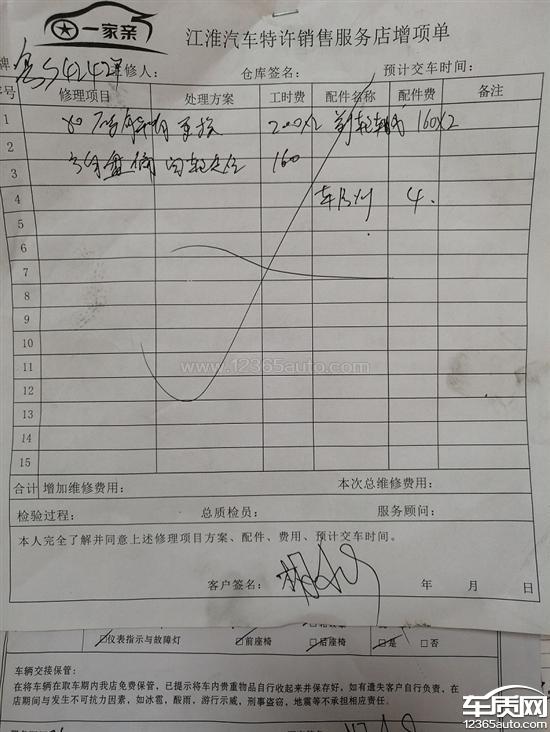 一家亲
江淮汽车特许销售服务店增项单
牌 54242 修人： 仓库签名： 预计交车时间：
序号 修理项目 处理方案 工时费 配件名称 配件费 备注
1 更换 200x2 前轮轴 160x2
2
3 方向盘偏 四轮定位 160
4 4.
5
6
7
8
9
10
11
12
13
14
15
www.12365auto.com
合计 增加维修费用： 本次总维修费用：
检验过程： 总质检员： 服务顾问：
本人完全了解并同意上述修理项目方案、配件、费用、预计交车时间。
客户签名： 年 月 日
□仪表指示与故障灯 □前座椅 □后座椅 □是 □否
车辆交接保管：
在将车辆在取车期内我店免费保管，已提示将车内贵重物品自行收起来并保存好，如有遗失客户自行负责，在
店期间与发生不可抗力因素，如冰雹，酸雨，游行示威，刑事盗窃，地震等不承担相应责任。
车质网
12365auto.com